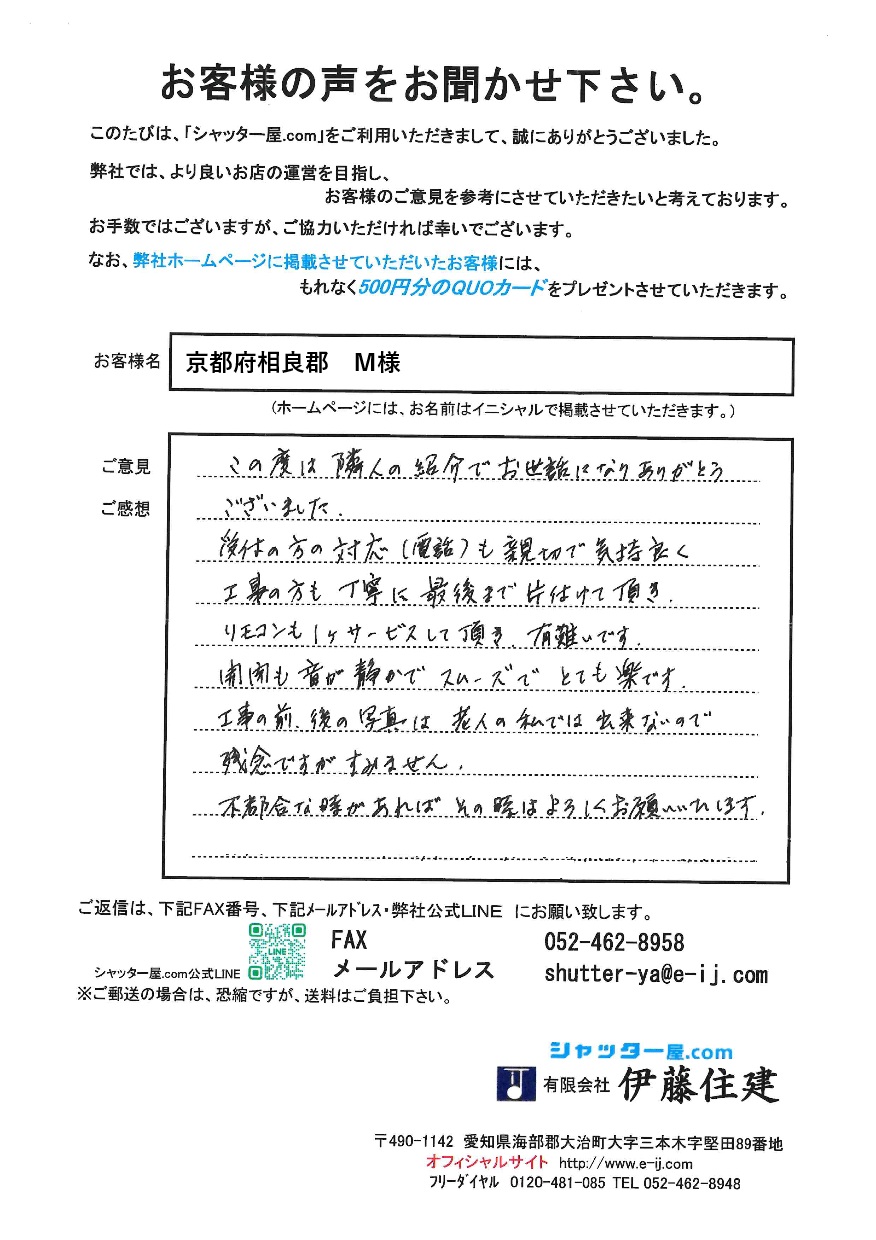 お客様の声をお聞かせ下さい。
このたびは、「シャッター屋.com」をご利用いただきまして、誠にありがとうございました。
弊社では、より良いお店の運営を目指し、
お客様のご意見を参考にさせていただきたいと考えております。
お手数ではございますが、ご協力いただければ幸いでございます。
なお、弊社ホームページに掲載させていただいたお客様には、
もれなく500円分のQUOカードをプレゼントさせていただきます。
お客様名 京都府相良郡 M様
(ホームページには、お名前はイニシャルで掲載させていただきます。)
ご意見 この度は隣人の紹介でお世話になりありがとう
ご感想 ございました.
受付の方の対応(電話)も親切で気持良く
工事の方も丁寧に最後まで片付けて頂き.
リモコンも1ケサービスして頂き.有難いです.
開閉も音が静かでスムーズでとても楽です.
工事の前.後の写真は老人の私では出来ないので
残念ですがすみません.
不都合な時があればその時はよろしくお願いいたします.
ご返信は、下記FAX番号、下記メールアドレス・弊社公式LINE にお願い致します。
LINE
シャッター屋.com公式LINE
FAX 052-462-8958
メールアドレス shutter-ya@e-ij.com
※ご郵送の場合は、恐縮ですが、送料はご負担下さい。
シャッター屋.com
有限会社 伊藤住建
〒490-1142 愛知県海部郡大治町大字三本木字堅田89番地
オフィシャルサイト http://www.e-ij.com
フリーダイヤル 0120-481-085 TEL 052-462-8948